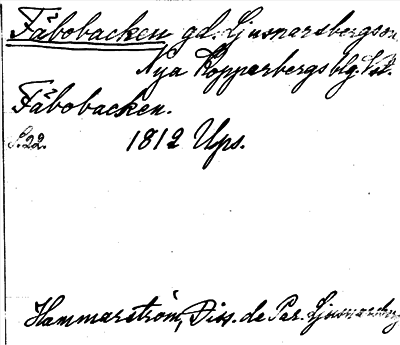 Fäbobacken gd. Ljusnarsbergs sn
Nya Kopparbergs blg. Vstm.
Fäbobacken.
S. 22. 1812 Ups.
Hammarström, Diss. de Par. Ljusnarsberg